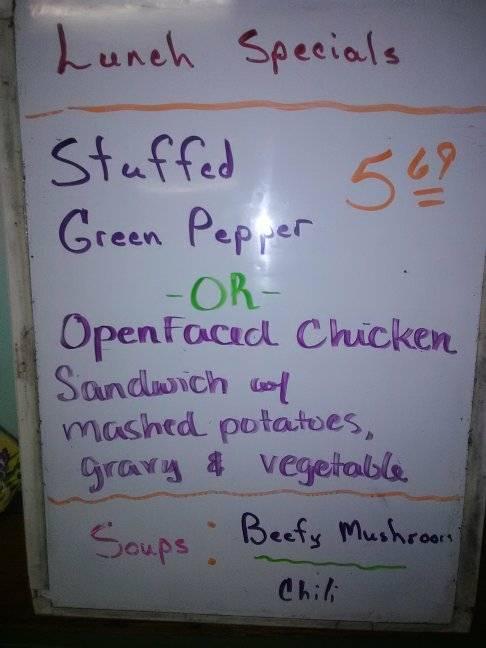 Lunch Specials
Stuffed
5 69
Green Pepper
-OR-
OpenFaced Chicken
Sandwich w/
mashed potatoes,
gravy & vegetable
Soups : Beefy Mushroom
Chili